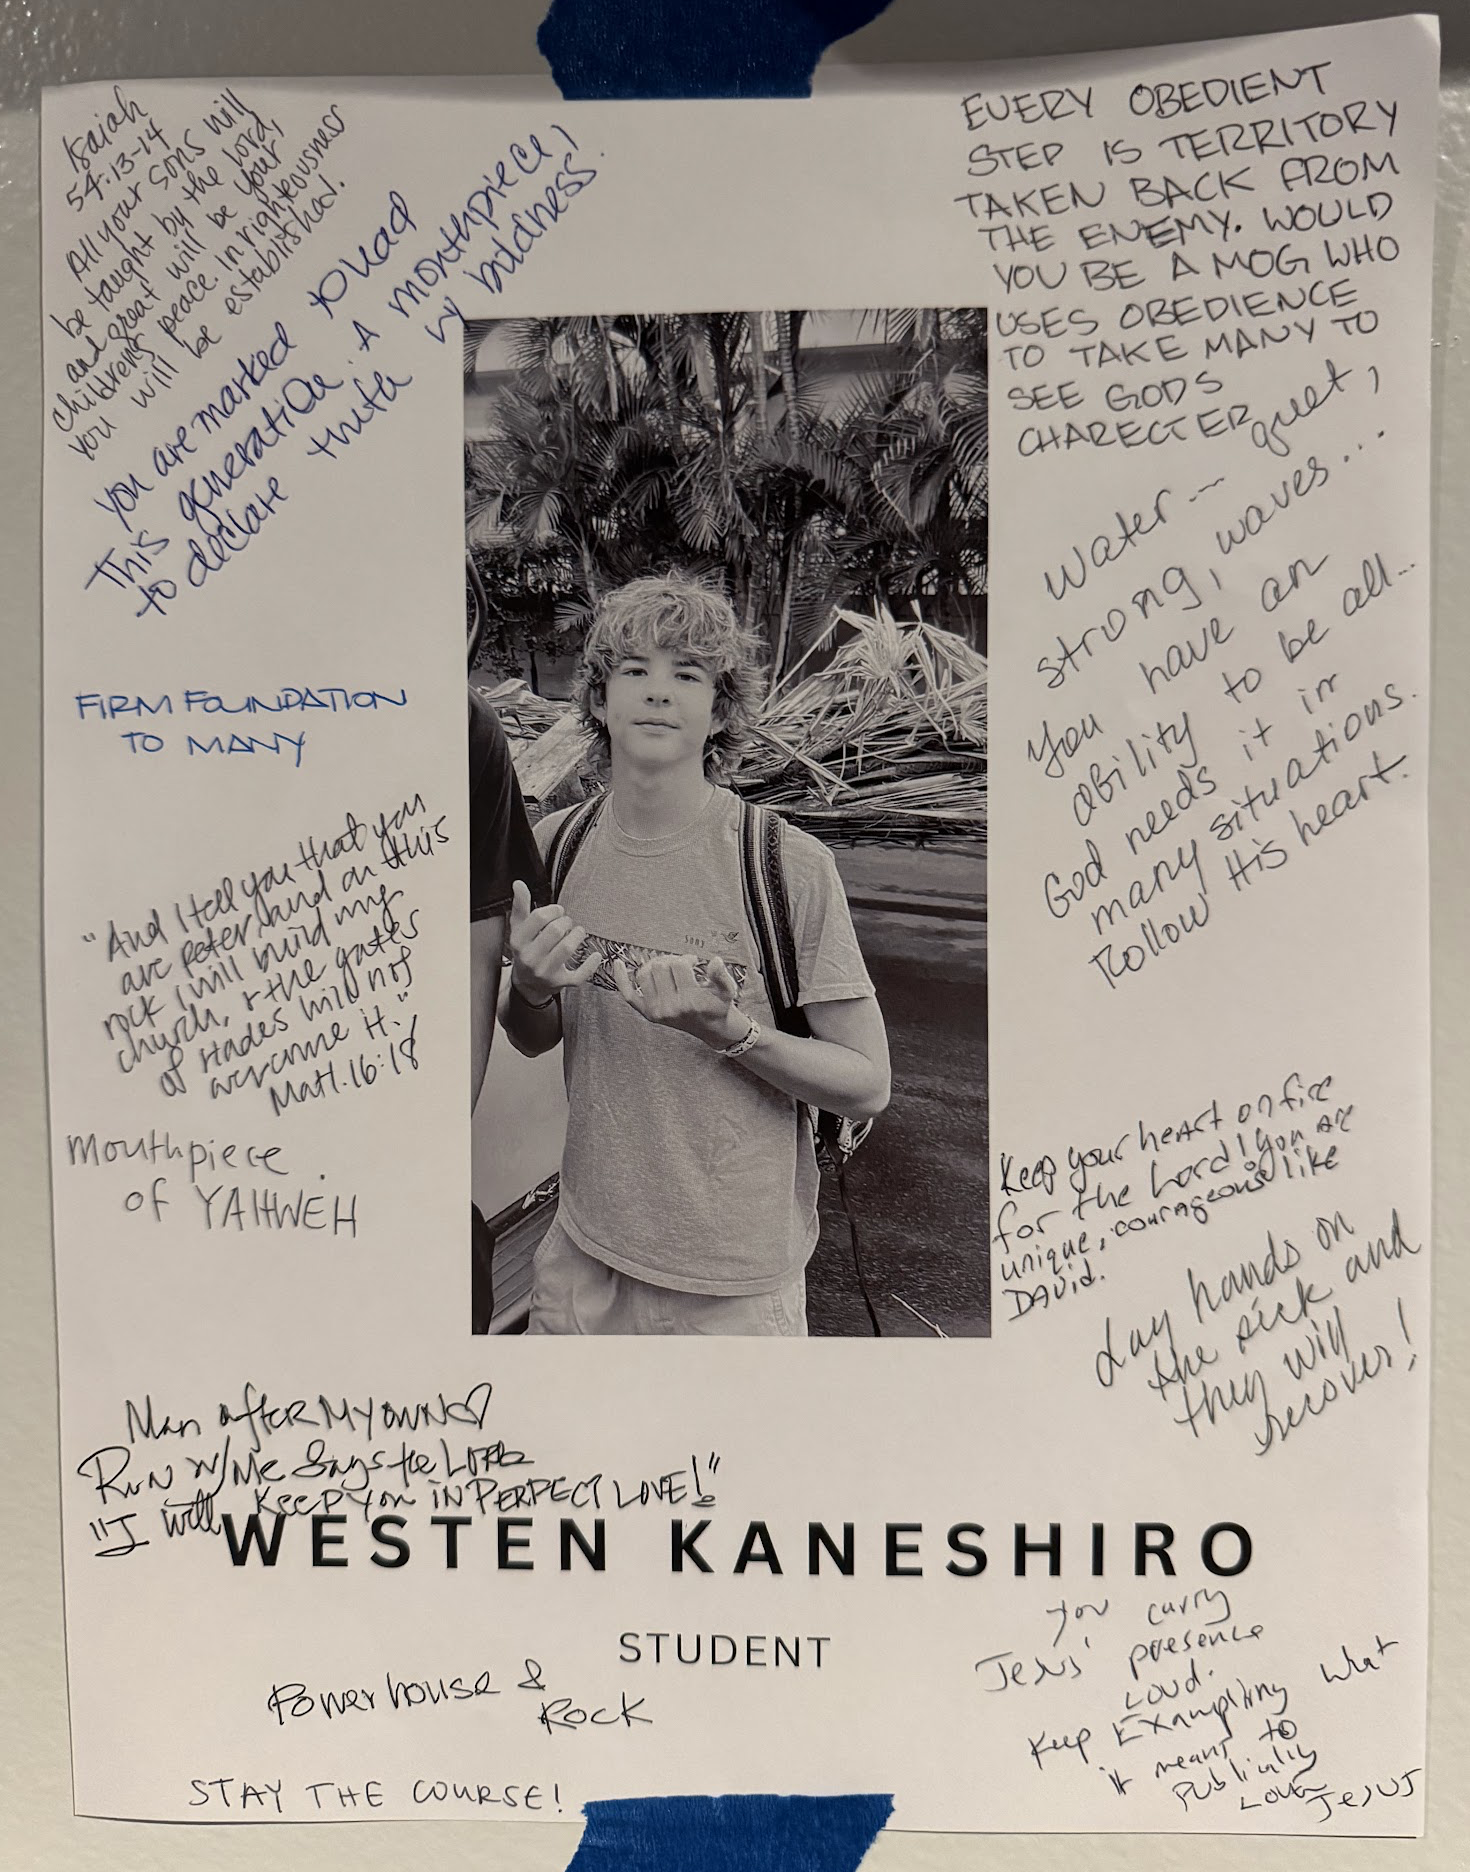 Isaiah
54:13-14
All your sons will
be taught by the Lord,
and great will be your
childrens peace. In righteousness
you will be established.
You are marked to lead
This generation. A mouthpiece,
to declare truth w/ boldness.
FIRM FOUNDATION
TO MANY
"And I tell you that you
are Peter, and on this
rock I will build my
church, & the gates
of Hades will not
overcome it."
Matt. 16:18
Mouthpiece
of YAHWEH
Man after MY OWN ♡
Run w/ Me Says the LORD
"I will keep you in PERFECT LOVE!"
EVERY OBEDIENT
STEP IS TERRITORY
TAKEN BACK FROM
THE ENEMY. WOULD
YOU BE A MOG WHO
USES OBEDIENCE
TO TAKE MANY TO
SEE GODS
CHARECTER
Water --- quiet,
strong, waves...
You have an
ability to be all...
God needs it in
many situations.
Follow His heart.
Keep your heart on fire
for the Lord! You are
unique, courageous like
David.
Lay hands on
the sick and
they will
recover!
WESTEN KANESHIRO
STUDENT
Powerhouse &
Rock
STAY THE COURSE!
You carry
Jesus' presence
Loud.
Keep Exampling what
it means to
Publicly
Love Jesus